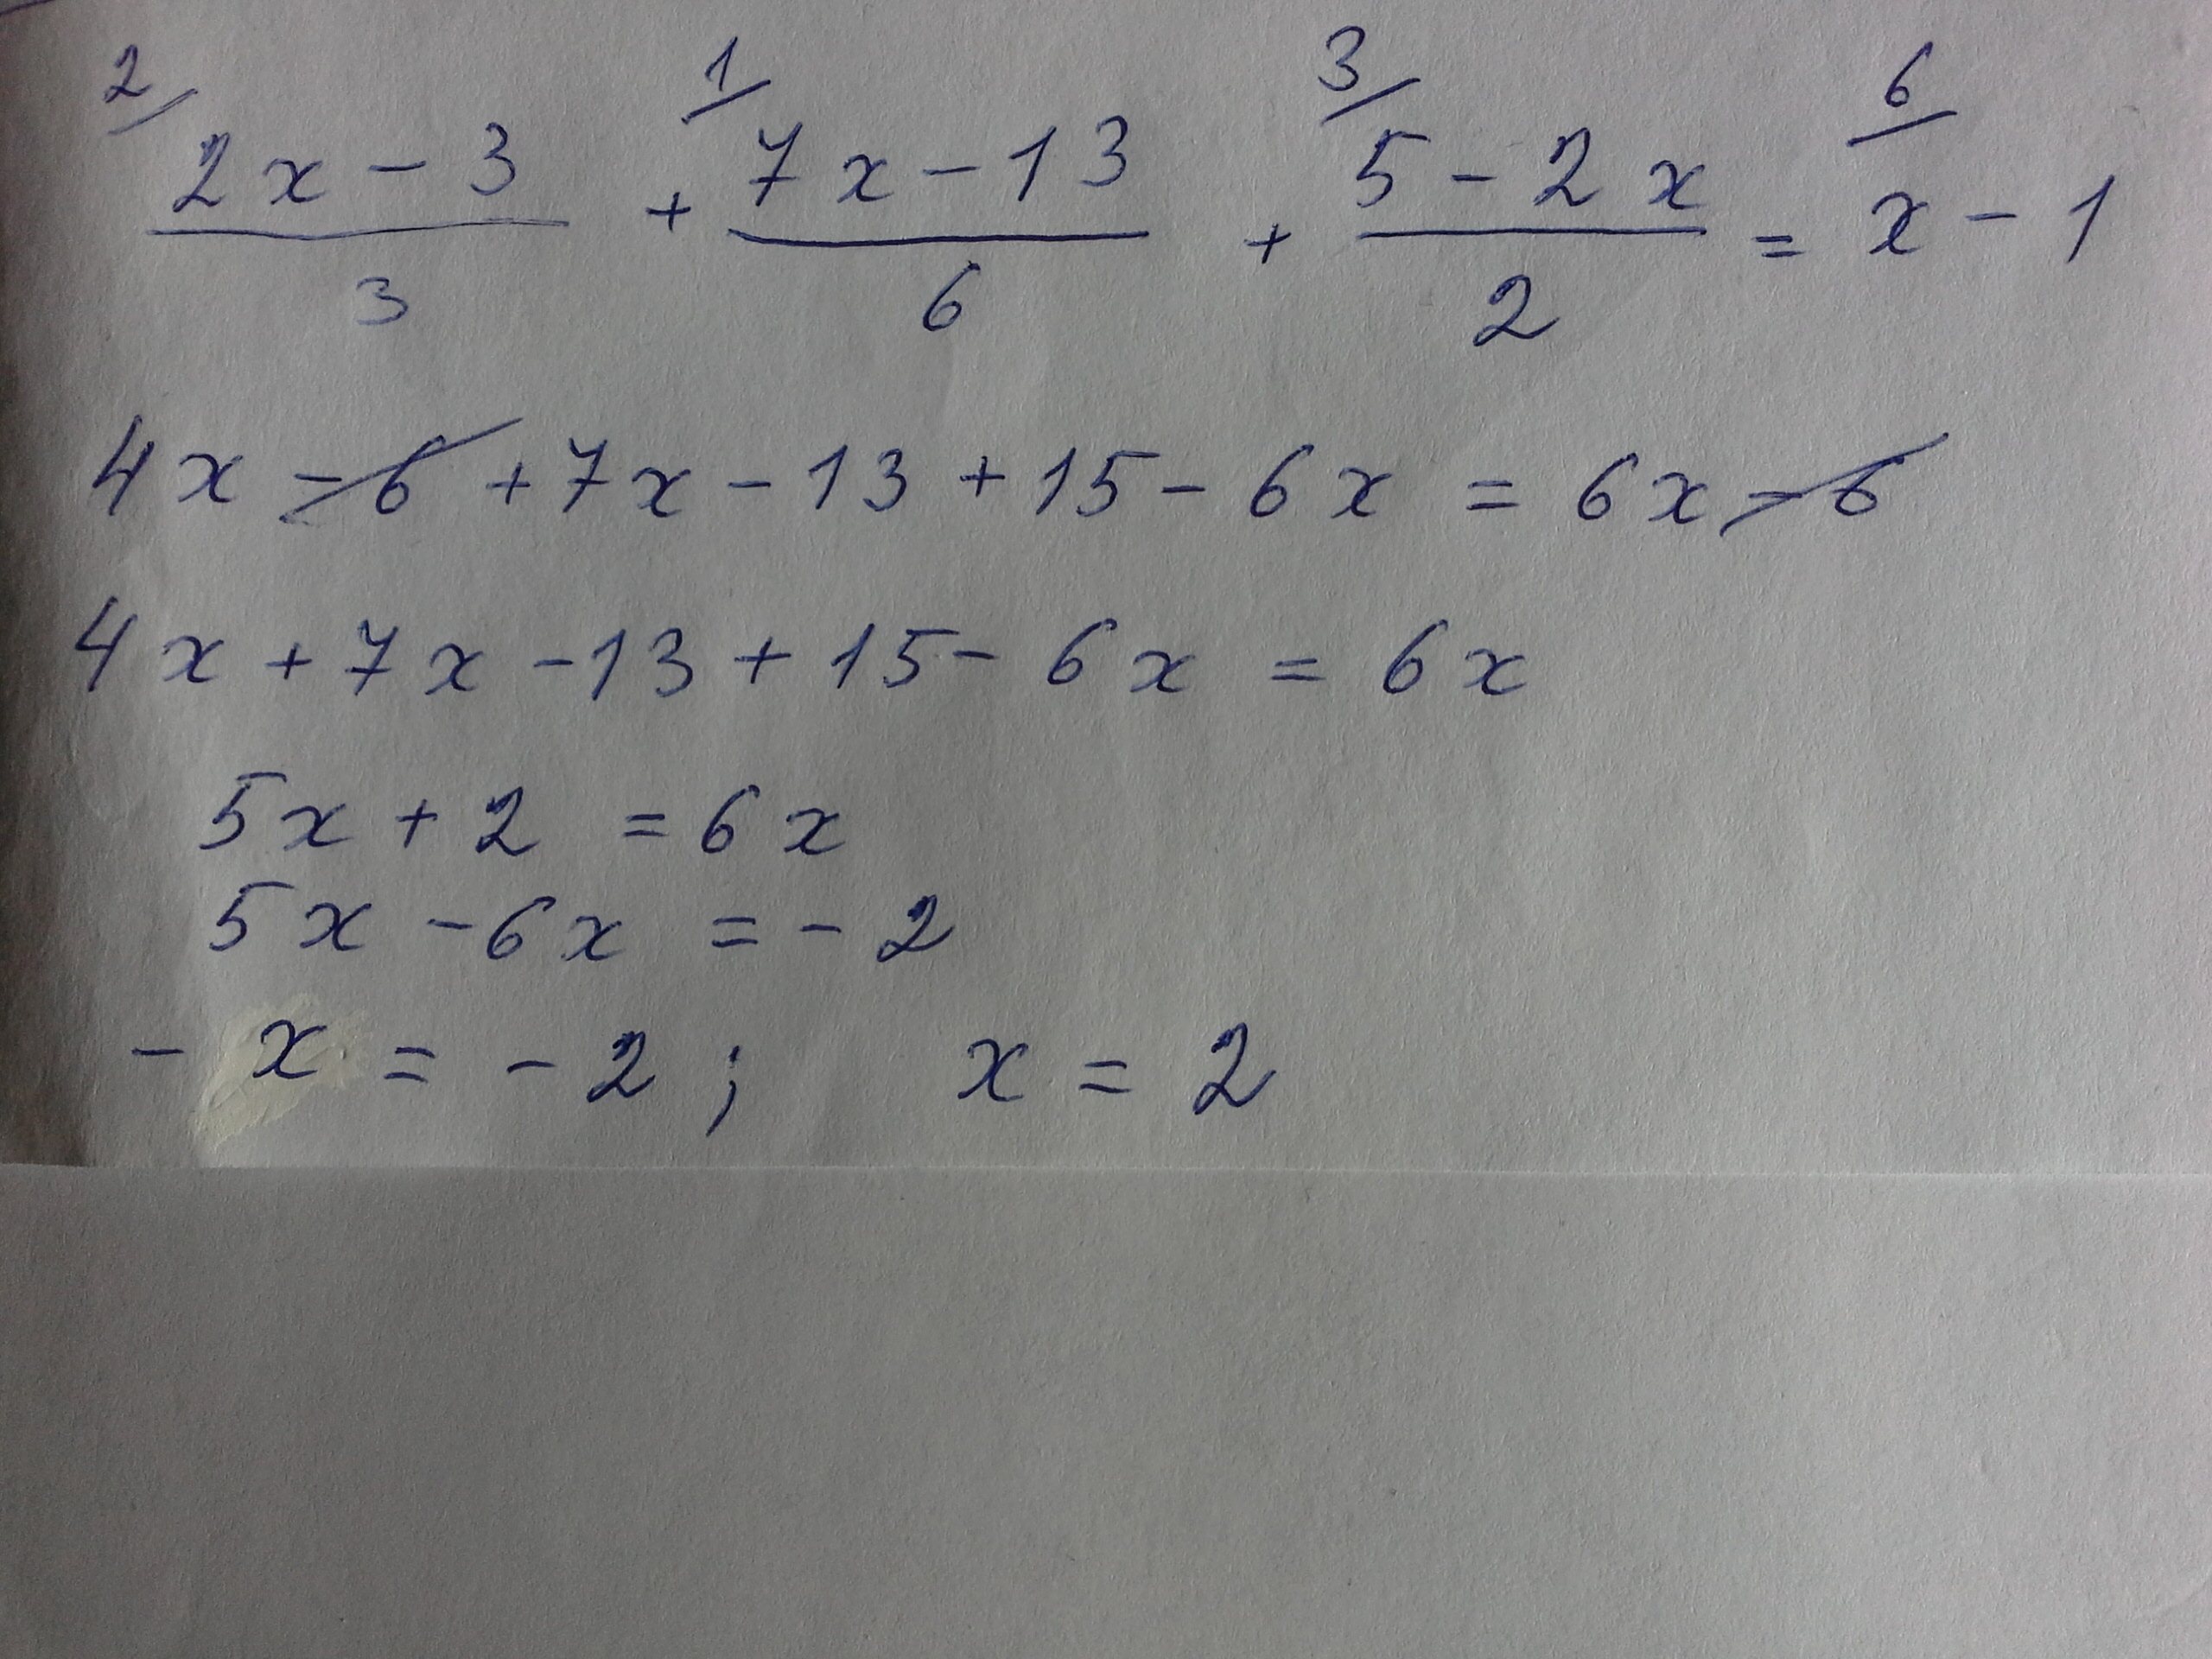 2/ 1/ 3/ 6/
2x - 3 / 3 + 7x - 13 / 6 + 5 - 2x / 2 = x - 1
4x - 6 + 7x - 13 + 15 - 6x = 6x - 6
4x + 7x - 13 + 15 - 6x = 6x
5x + 2 = 6x
5x - 6x = - 2
- x = - 2 ; x = 2